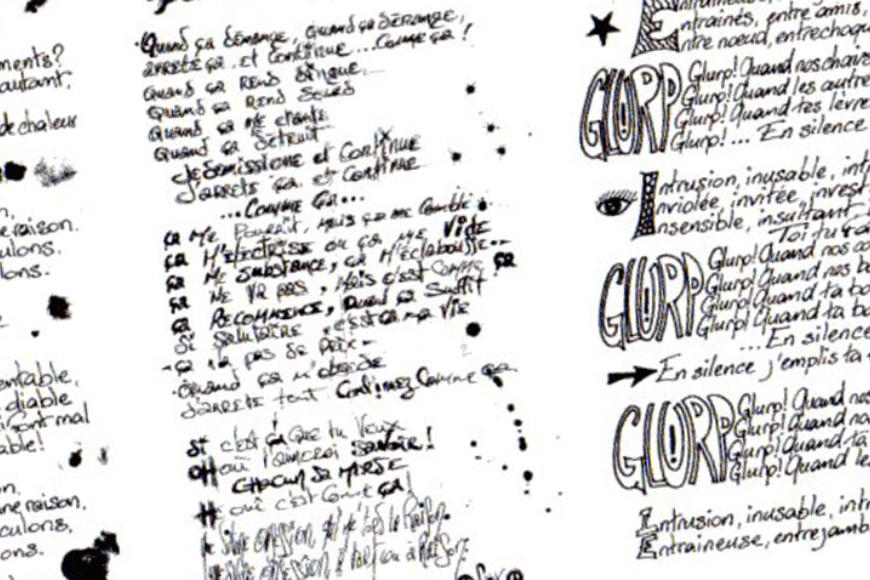 ments?
autant,
de chaleur
n,
e raison.
ulons.
lons.
entable,
diable
mal
able!
n,
une raison,
culons,
ons.
Quand ça démange, quand ça dérange,
arrête ça et continue... comme ça!
Quand ça rend dingue...
Quand ça rend sourd
Quand ça me chante
Quand ça détruit
Je démissionne et continue
J'arrête ça et continue
...Comme ça...
ça me pourrit, mais ça me comble
ça m'électrise ou ça me vide
ça me substance, ça m'éclabousse...
ça ne va pas, mais c'est comme ça
ça recommence, quand ça suffit
si salutaire, c'est ça ma vie
-ça n'a pas de prix-
Quand ça m'obsède
J'arrête tout continuez comme ça.
Si c'est ça que tu veux
OH oui l'amerai savoir!
Chacun sa merde
H oui c'est comme ça!
Entrainés, entre amis,
Entre nœud, entrechoqu
GLURP Glurp! Quand nos chairs
Glurp! Quand les autre
Glurp! Quand tes lèvre
Glurp! ... En silence
Intrusion, inusable, int
Inviolée, invitée, invest
Insensible, insultant
Toi tu
GLURP Glurp! Quand nos co
Glurp! Quand nos be
Glurp! Quand ta bo
Glurp! Quand ta bo
...En silence
En silence j'emplis ta
GLURP Glurp! Quand nos
Glurp! Quand na
Glurp! Quand ta
Glurp! Quand le
Intrusion, inusable, intr
Entraineuse, entrejamb